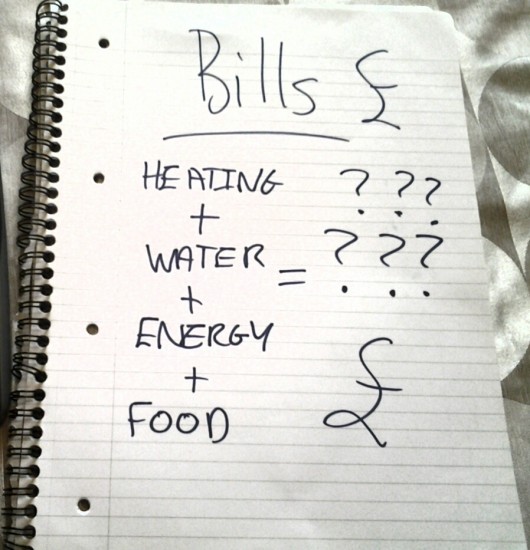 Bills £
HEATING ? ? ?
+
WATER = ? ? ?
+
ENERGY
+
FOOD £